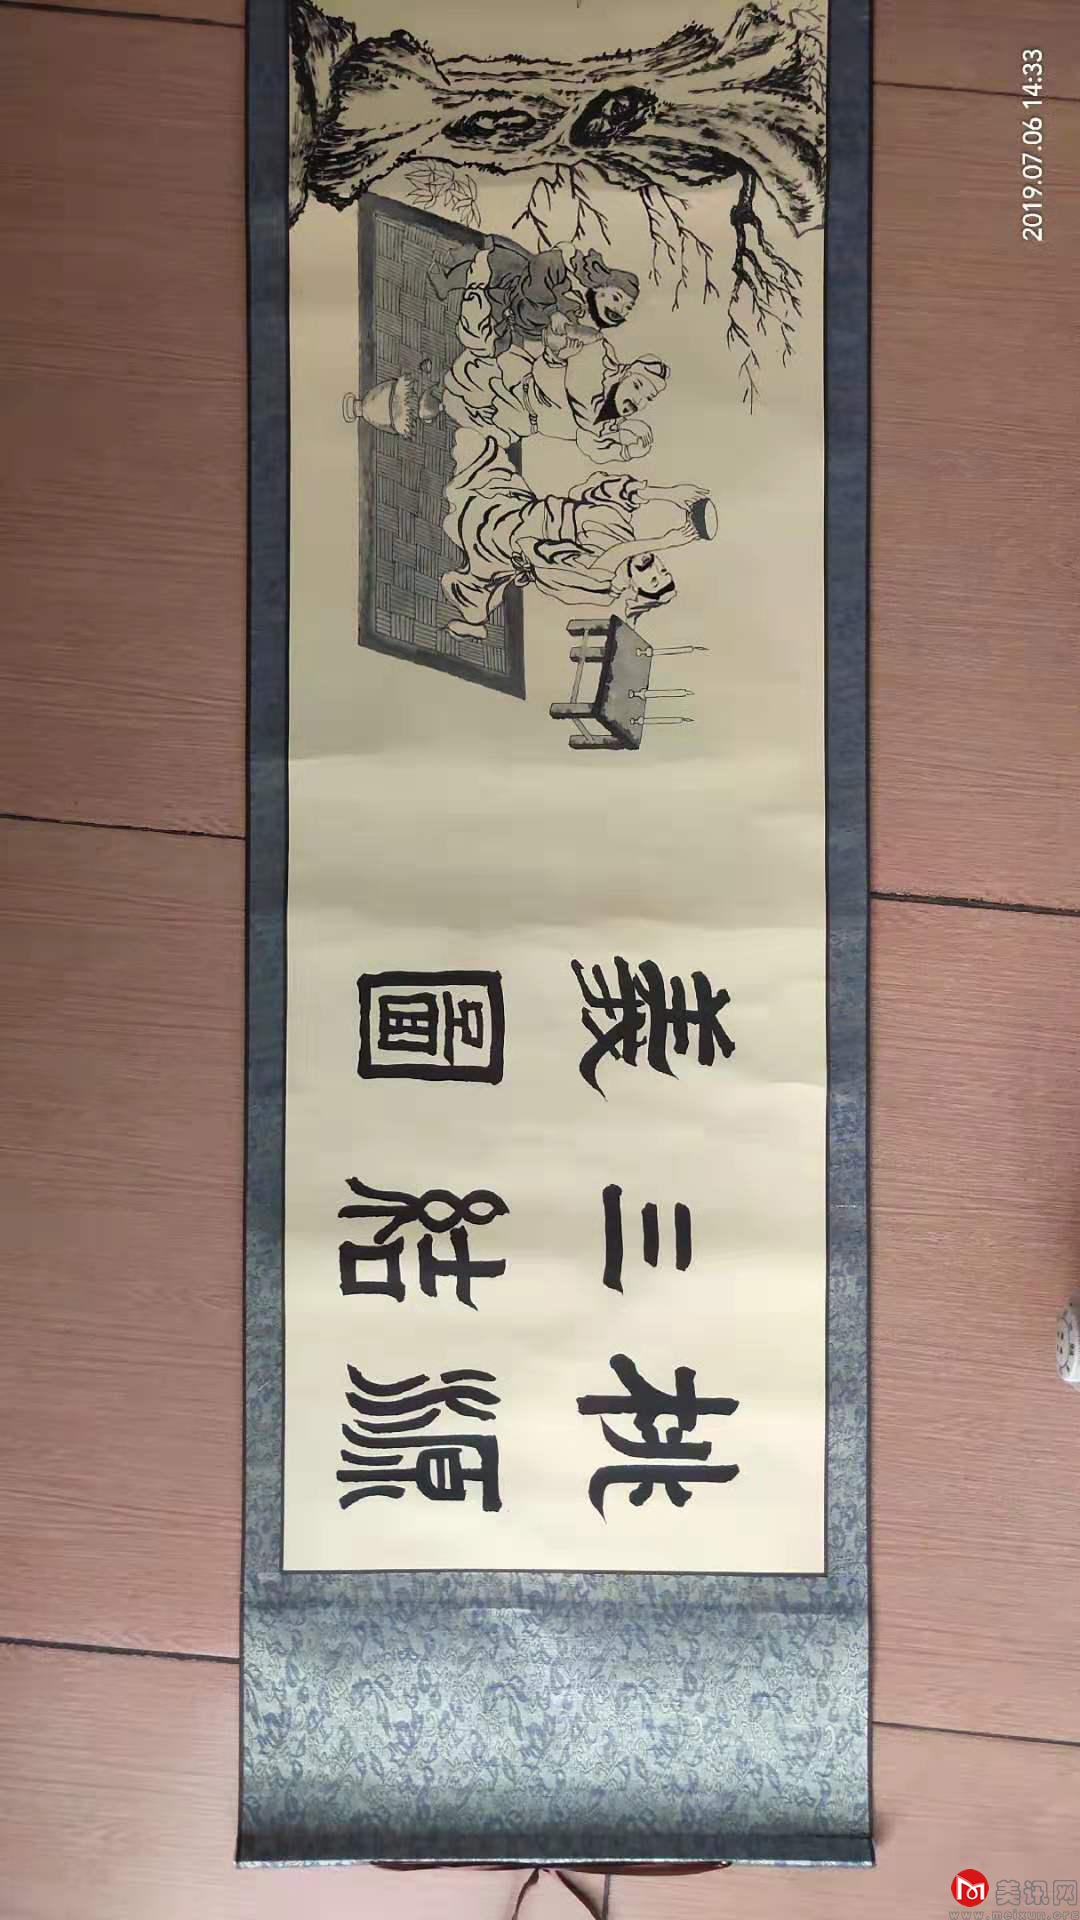 桃源
三結
義圖
2019.07.06 14:33
美讯网
www.meixun.org